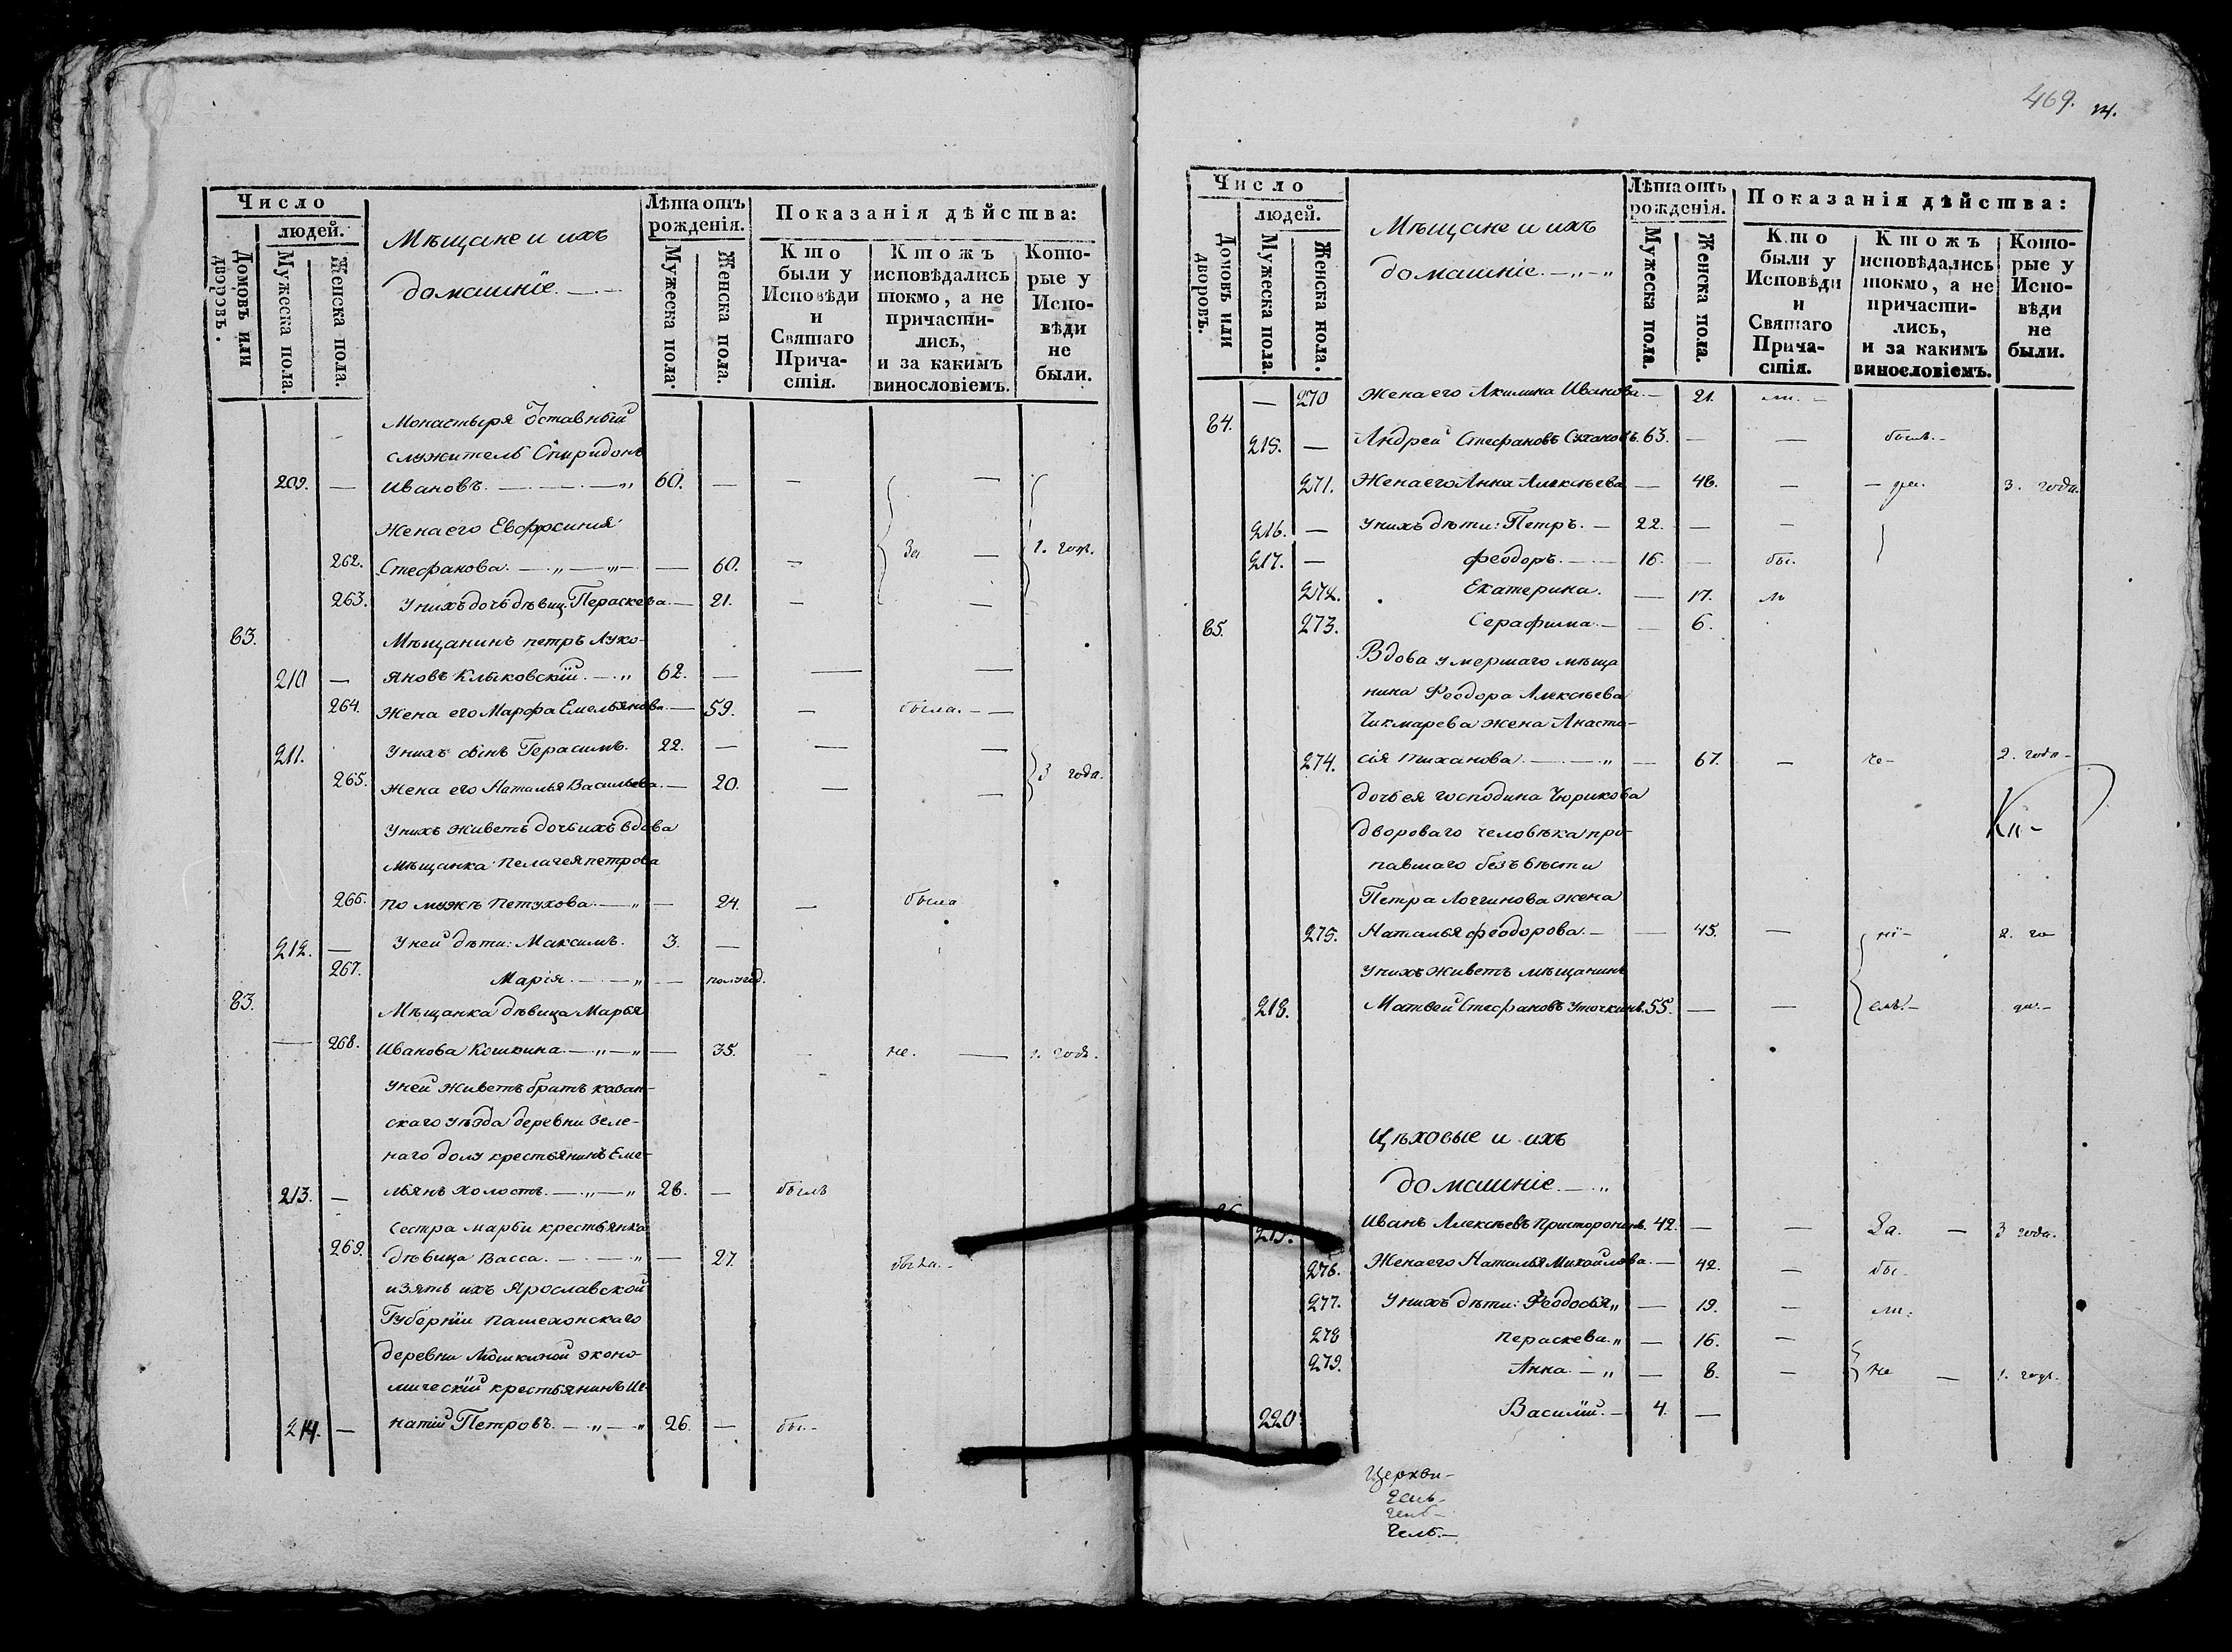 Число
людей.
Домовъ или дворовъ.
Мужеска пола.
Женска пола.
Мѣщане и ихъ
домашніе. — · —
Лѣта отъ рожденія.
Мужеска пола.
Женска пола.
Показанія дѣйства:
Кто были у Исповѣди и Святаго Причастія.
Кто жъ исповѣдались токмо, а не причастились, и за какимъ винословіемъ.
Которые у Исповѣди не были.
Монастыря Уставный
служитель Спиридонъ
209. — Ивановъ. — · — · — „ 60. — — —
Жена его Евфросинія
262. Стефанова. — „ — „ — — 60. — За — 1. годъ.
263. У нихъ дочь дѣвиц. Пераскева. — 21. — —
83. Мѣщанинъ петръ Луко-
210 — яновъ Клыковскій. — „ 62. — — —
264. Жена его Марфа Емельянова. — 59. — была. — —
211. У нихъ сынъ Герасимъ. 22. — — —
265. Жена его Наталья Васильева. — 20. — — 3 года.
У нихъ живетъ дочь ихъ вдова
Мѣщанка Пелагея петрова
266. по мужѣ Петухова. — „ — 24. — была
212. — У ней дѣти: Максимъ. 3. —
267. Марія. — · — „ — полугод.
83. Мѣщанка дѣвица Марья
— 268. Иванова Кошкина. — „ — „ — 35. — не. — 1. годъ.
У ней живетъ братъ казан-
скаго уѣзда деревни Зеле-
наго долу крестьянинъ Еме-
213. — льянъ холостъ. — „ — „ 26. — былъ
Сестра Марьи крестьянка
269. дѣвица Васса. — · — · — „ — 27. была. —
и зять ихъ Ярославской
Губерніи пашехонскаго
деревни Мошкиной эконо-
мическій крестьянинъ Иг-
214. — натій Петровъ. — „ — „ 26. — бы. —
469.
Число
людей.
Домовъ или дворовъ.
Мужеска пола.
Женска пола.
Мѣщане и ихъ
домашніе. — „ — „
Лѣта отъ рожденія.
Мужеска пола.
Женска пола.
Показанія дѣйства:
Кто были у Исповѣди и Святаго Причастія.
Кто жъ исповѣдались токмо, а не причастились, и за какимъ винословіемъ.
Которые у Исповѣди не были.
— 270 Жена его Акилина Иванова. — 21. ли. —
84. 215. — Андрей Стефановъ Сухановъ. 63. — — былъ. —
271. Жена его Анна Алексѣева — 46. — 3. года.
216. — У нихъ дѣти: Петръ. — 22. — —
217. — Феодоръ. — · — 16. — бы.
272. Екатерина. — 17. ли
85. 273. Серафима. — — 6.
Вдова умершаго мѣща
нина Феодора Алексѣева
Чикмарева жена Анаста-
274. сія Тиханова. — · — · — „ — 67. — не — 2. года —
дочь ея господина Чюрикова
двороваго человѣка про-
павшаго безъ вѣсти
Петра Логгинова жена
275. Наталья Феодорова. — — 45. — 2. го
У нихъ живетъ мѣщанинъ
218. Матвей Стефановъ Уточкинъ. 55. — —
Цѣховые и ихъ
домашніе. — · „
219. Иванъ Алексѣевъ Присторонинъ. 42. — — За. — 3 года.
276. Жена его Наталья Михайлова. — 42. — бы —
277. У нихъ дѣти: Феодосья „ — 19. — ли.
278 Пераскева. „ — 16. —
279. Анна. — „ — 8. — не — 1. годъ.
220 Василій. — 4. —
Церкви —